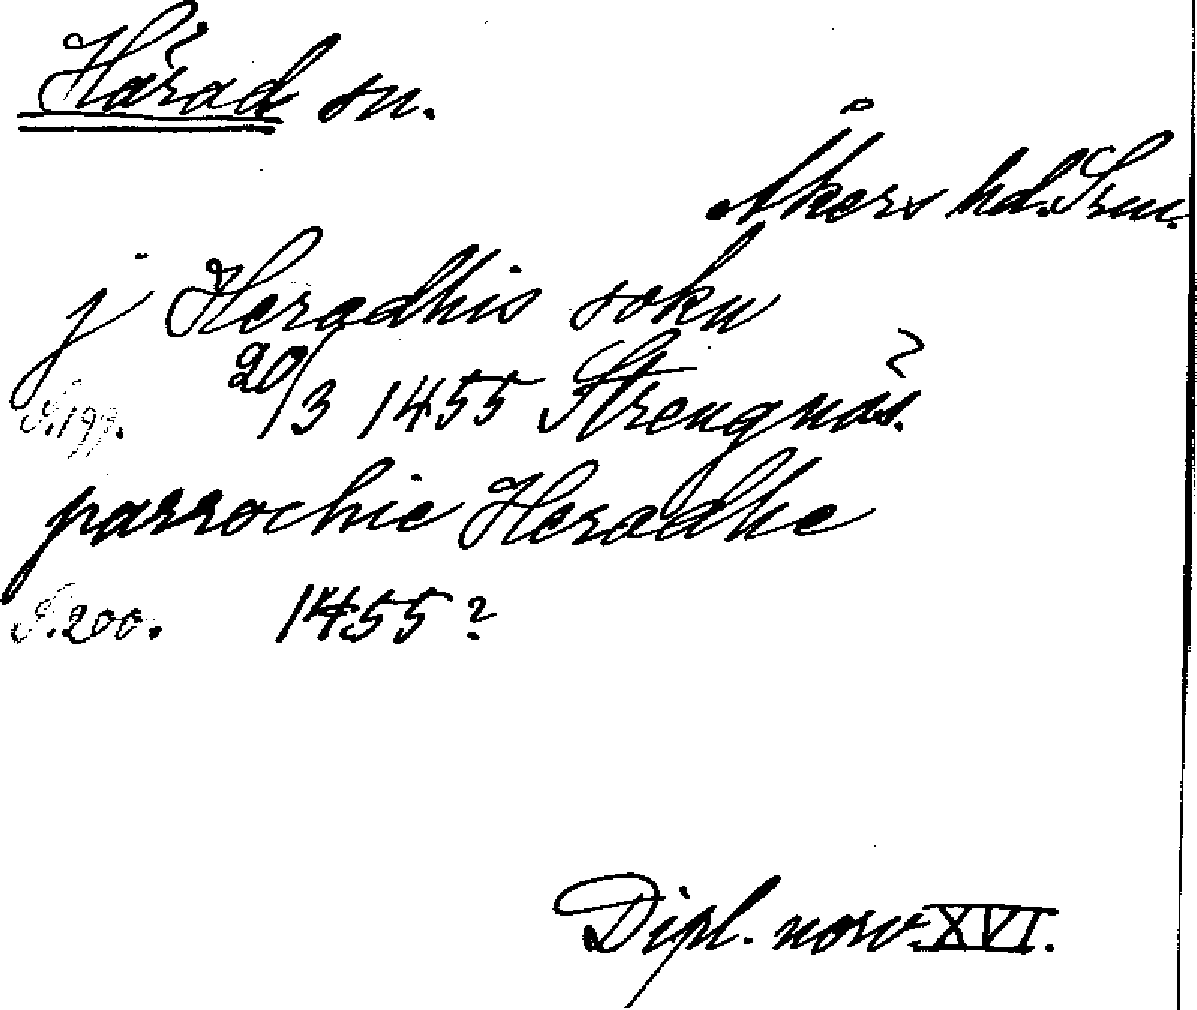 Härad sn.
Åkers hd. Srm.
j Heradhis sokn
S. 199. 20/3 1455 Strengnäs.
parrochie Heradhe
S. 200. 1455?
Dipl. norv. XVI.